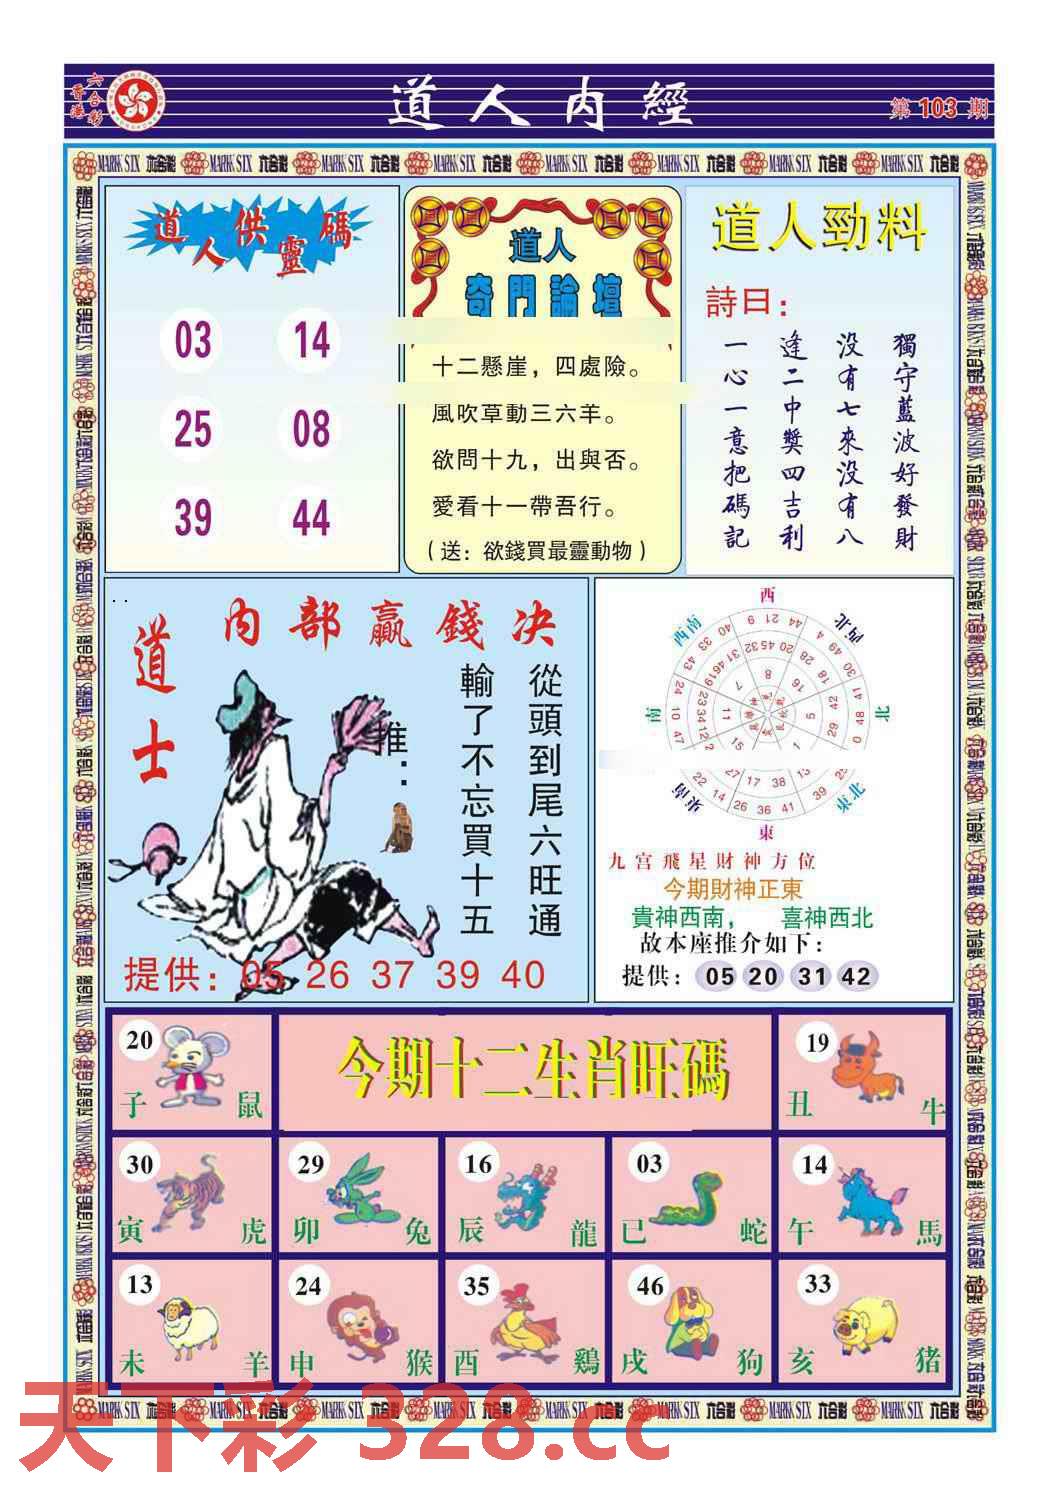 六合彩
香港
道人內經
第 103 期
道人供靈碼
03 14
25 08
39 44
道人
奇門論壇
十二懸崖，四處險。
風吹草動三六羊。
欲問十九，出與否。
愛看十一帶吾行。
（送：欲錢買最靈動物）
道人勁料
詩曰：
獨守藍波好發財
没有七來没有八
逢二中獎四吉利
一心一意把碼記
道士
內部贏錢决
從頭到尾六旺通
輸了不忘買十五
推：
提供：05 26 37 39 40
西
西北
北
東北
東
東南
南
西南
九宫飛星財神方位
今期財神正東
貴神西南， 喜神西北
故本座推介如下：
提供：05 20 31 42
今期十二生肖旺碼
20 子 鼠
19 丑 牛
30 寅 虎
29 卯 兔
16 辰 龍
03 巳 蛇
14 午 馬
13 未 羊
24 申 猴
35 酉 鷄
46 戌 狗
33 亥 猪
MARK SIX 六合彩
天下彩 328.cc